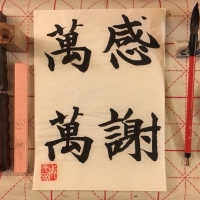 感謝
萬萬